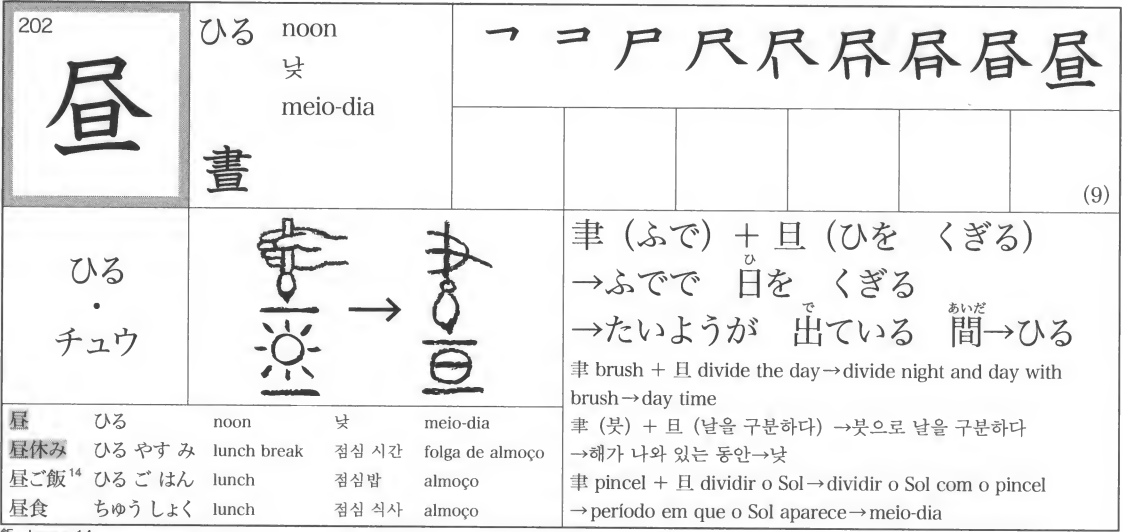 202
昼
ひる noon
낮
meio-dia
晝
𠃍 コ 尸 尺 昼
(9)
ひる
・
チュウ
聿（ふで）＋旦（ひを　くぎる）
→ふでで　日を　くぎる
ひ
→たいようが　出ている　間→ひる
で　あいだ
聿 brush + 旦 divide the day→divide night and day with
brush→day time
聿 (붓) + 旦 (날을 구분하다) →붓으로 날을 구분하다
→해가 나와 있는 동안→낮
聿 pincel + 旦 dividir o Sol→dividir o Sol com o pincel
→período em que o Sol aparece→meio-dia
昼 ひる noon 낮 meio-dia
昼休み ひる やす み lunch break 점심 시간 folga de almoço
昼ご飯14 ひる ご はん lunch 점심밥 almoço
昼食 ちゅう しょく lunch 점심 식사 almoço